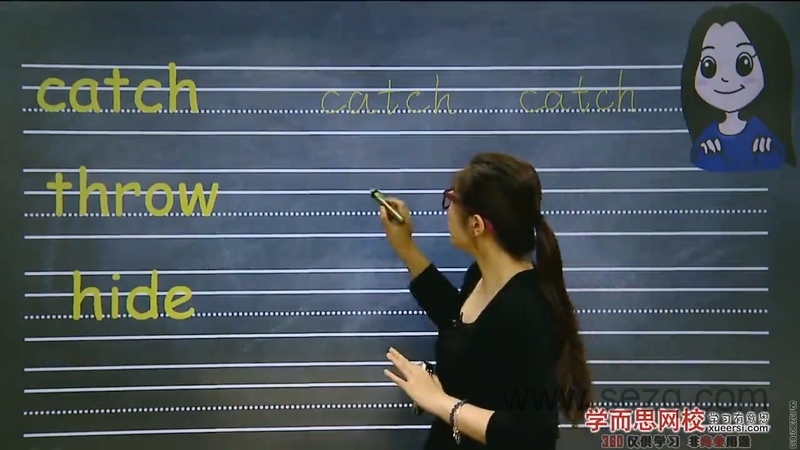 catch catch catch
throw
hide
www.sezq.com
学而思网校 学习有意思
xueersi.com
360 仅供学习 非商业用途